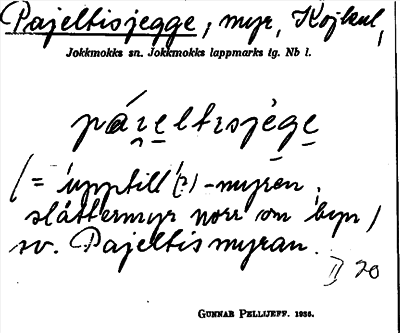 Pajeltisjegge, myr, Kojkul,
Jokkmokks sn. Jokkmokks lappmarks tg. Nb l.
pájeltısjège
(= upptill (?) -myren,
slåttermyr norr om byn)
sv. Pajeltismyran.
II 20
GUNNAR PELLIJEFF. 1936.